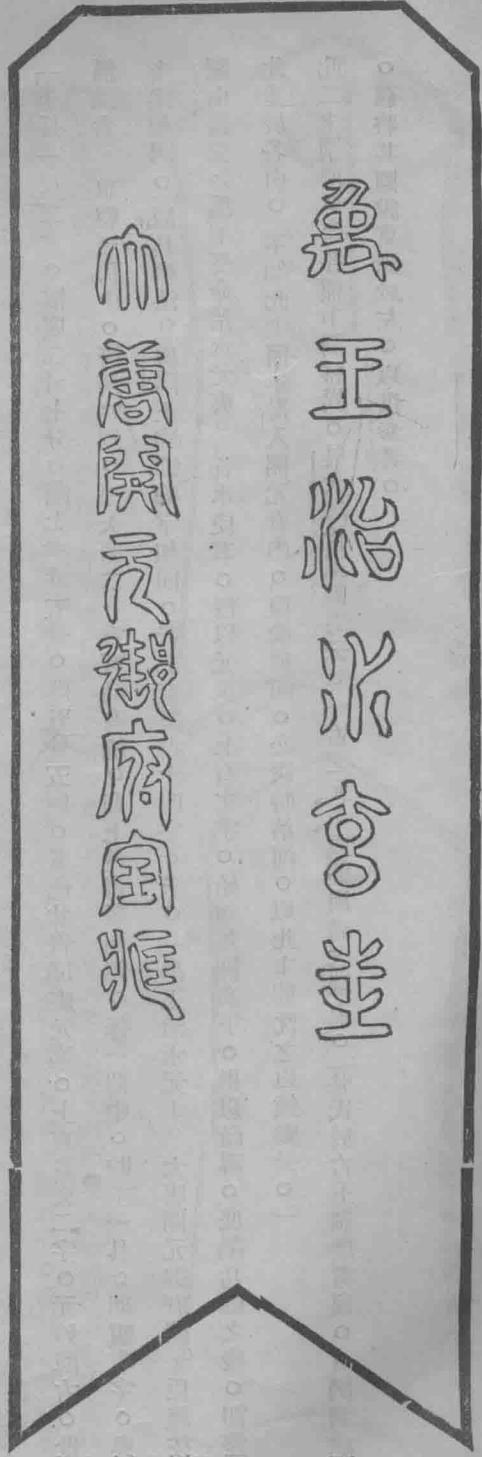 禹王治水玄圭
大唐開元御府寶藏